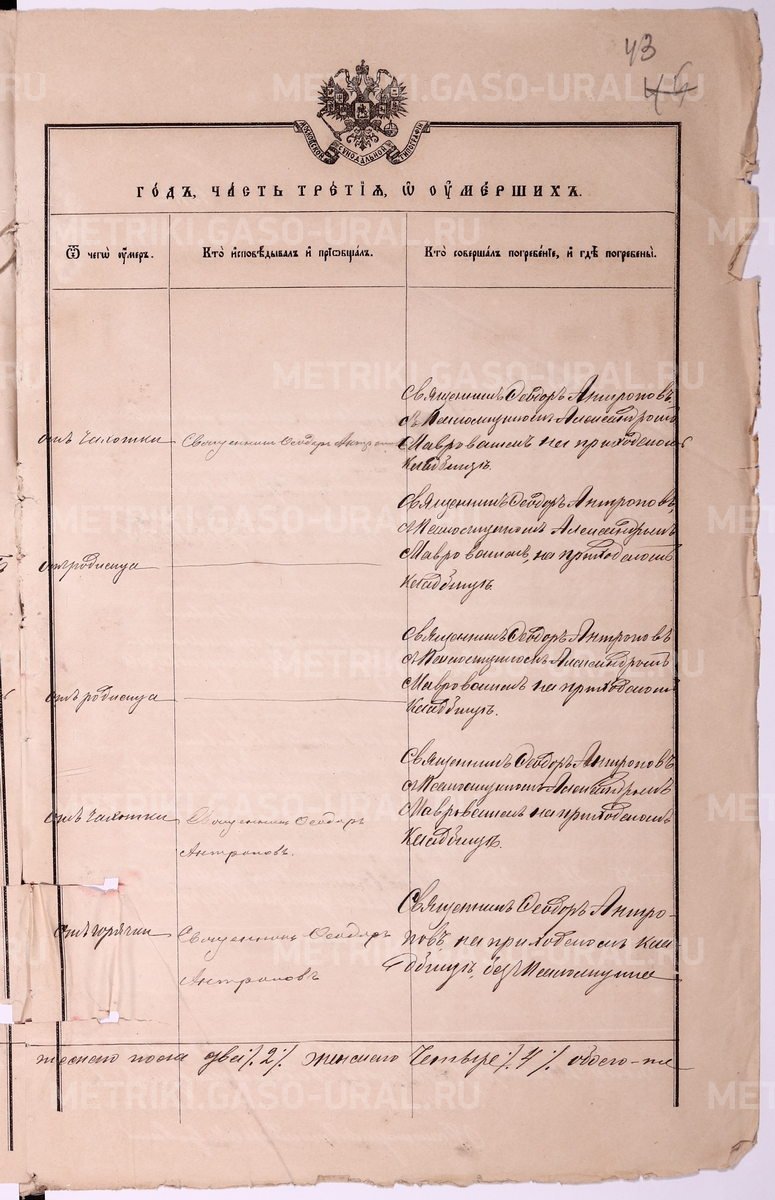 43
46
МОСКОВСКОЙ СУНОДАЛЬНОЙ ТИПОГРАФІИ
ГО́ДЪ, ЧА́СТЬ ТРЕ́ТІѦ, Ѡ҆ ОУ҆МЕ́РШИХЪ.
Ѿ чегѡ̀ оу҆́меръ.
Кто̀ и҆сповѣ́дывалъ и҆ прїѡбща́лъ.
Кто̀ соверша́лъ погребе́нїе, и҆ гдѣ̀ погребены̀.
отъ чахотки
Священникъ Ѳеодоръ Антропов
Священникъ Ѳеодоръ Антроповъ
съ Псаломщикомъ Александромъ
Мавровскимъ на приходскомъ
кладбищѣ.
отъ родимца
Священникъ Ѳеодоръ Антроповъ
съ Псаломщикомъ Александромъ
Мавровскимъ, на приходскомъ
кладбищѣ.
отъ родимца
Священникъ Ѳеодоръ Антроповъ
съ Псаломщикомъ Александромъ
Мавровскимъ на приходскомъ
кладбищѣ.
отъ чахотки
Священникъ Ѳеодоръ
Антроповъ.
Священникъ Ѳеодоръ Антроповъ
съ Псаломщикомъ Александромъ
Мавровскимъ на приходскомъ
кладбищѣ.
отъ горячки
Священникъ Ѳеодоръ
Антроповъ
Священникъ Ѳеодоръ Антро-
повъ на приходскомъ клад
бищѣ, безъ Псаломщика
мужского пола два /. 2 /. женскаго Четыре /. 4 /. обоего по
METRIKI.GASO-URAL.RU